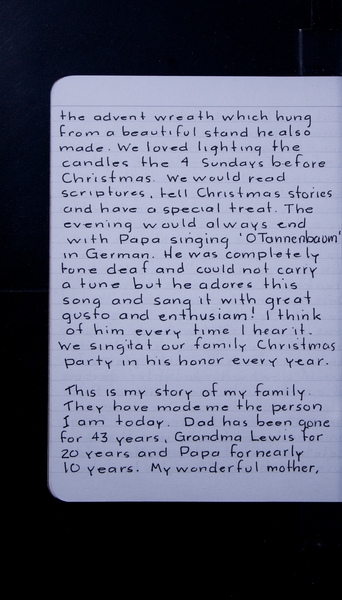 the advent wreath which hung
from a beautiful stand he also
made. We loved lighting the
candles the 4 Sundays before
Christmas. We would read
scriptures, tell Christmas stories
and have a special treat. The
evening would always end
with Papa singing 'O Tannenbaum'
in German. He was completely
tone deaf and could not carry
a tune but he adores this
song and sang it with great
gusto and enthusiam! I think
of him every time I hear it.
We sing it at our family Christmas
party in his honor every year.
This is my story of my family.
They have made me the person
I am today. Dad has been gone
for 43 years, Grandma Lewis for
20 years and Papa for nearly
10 years. My wonderful mother,